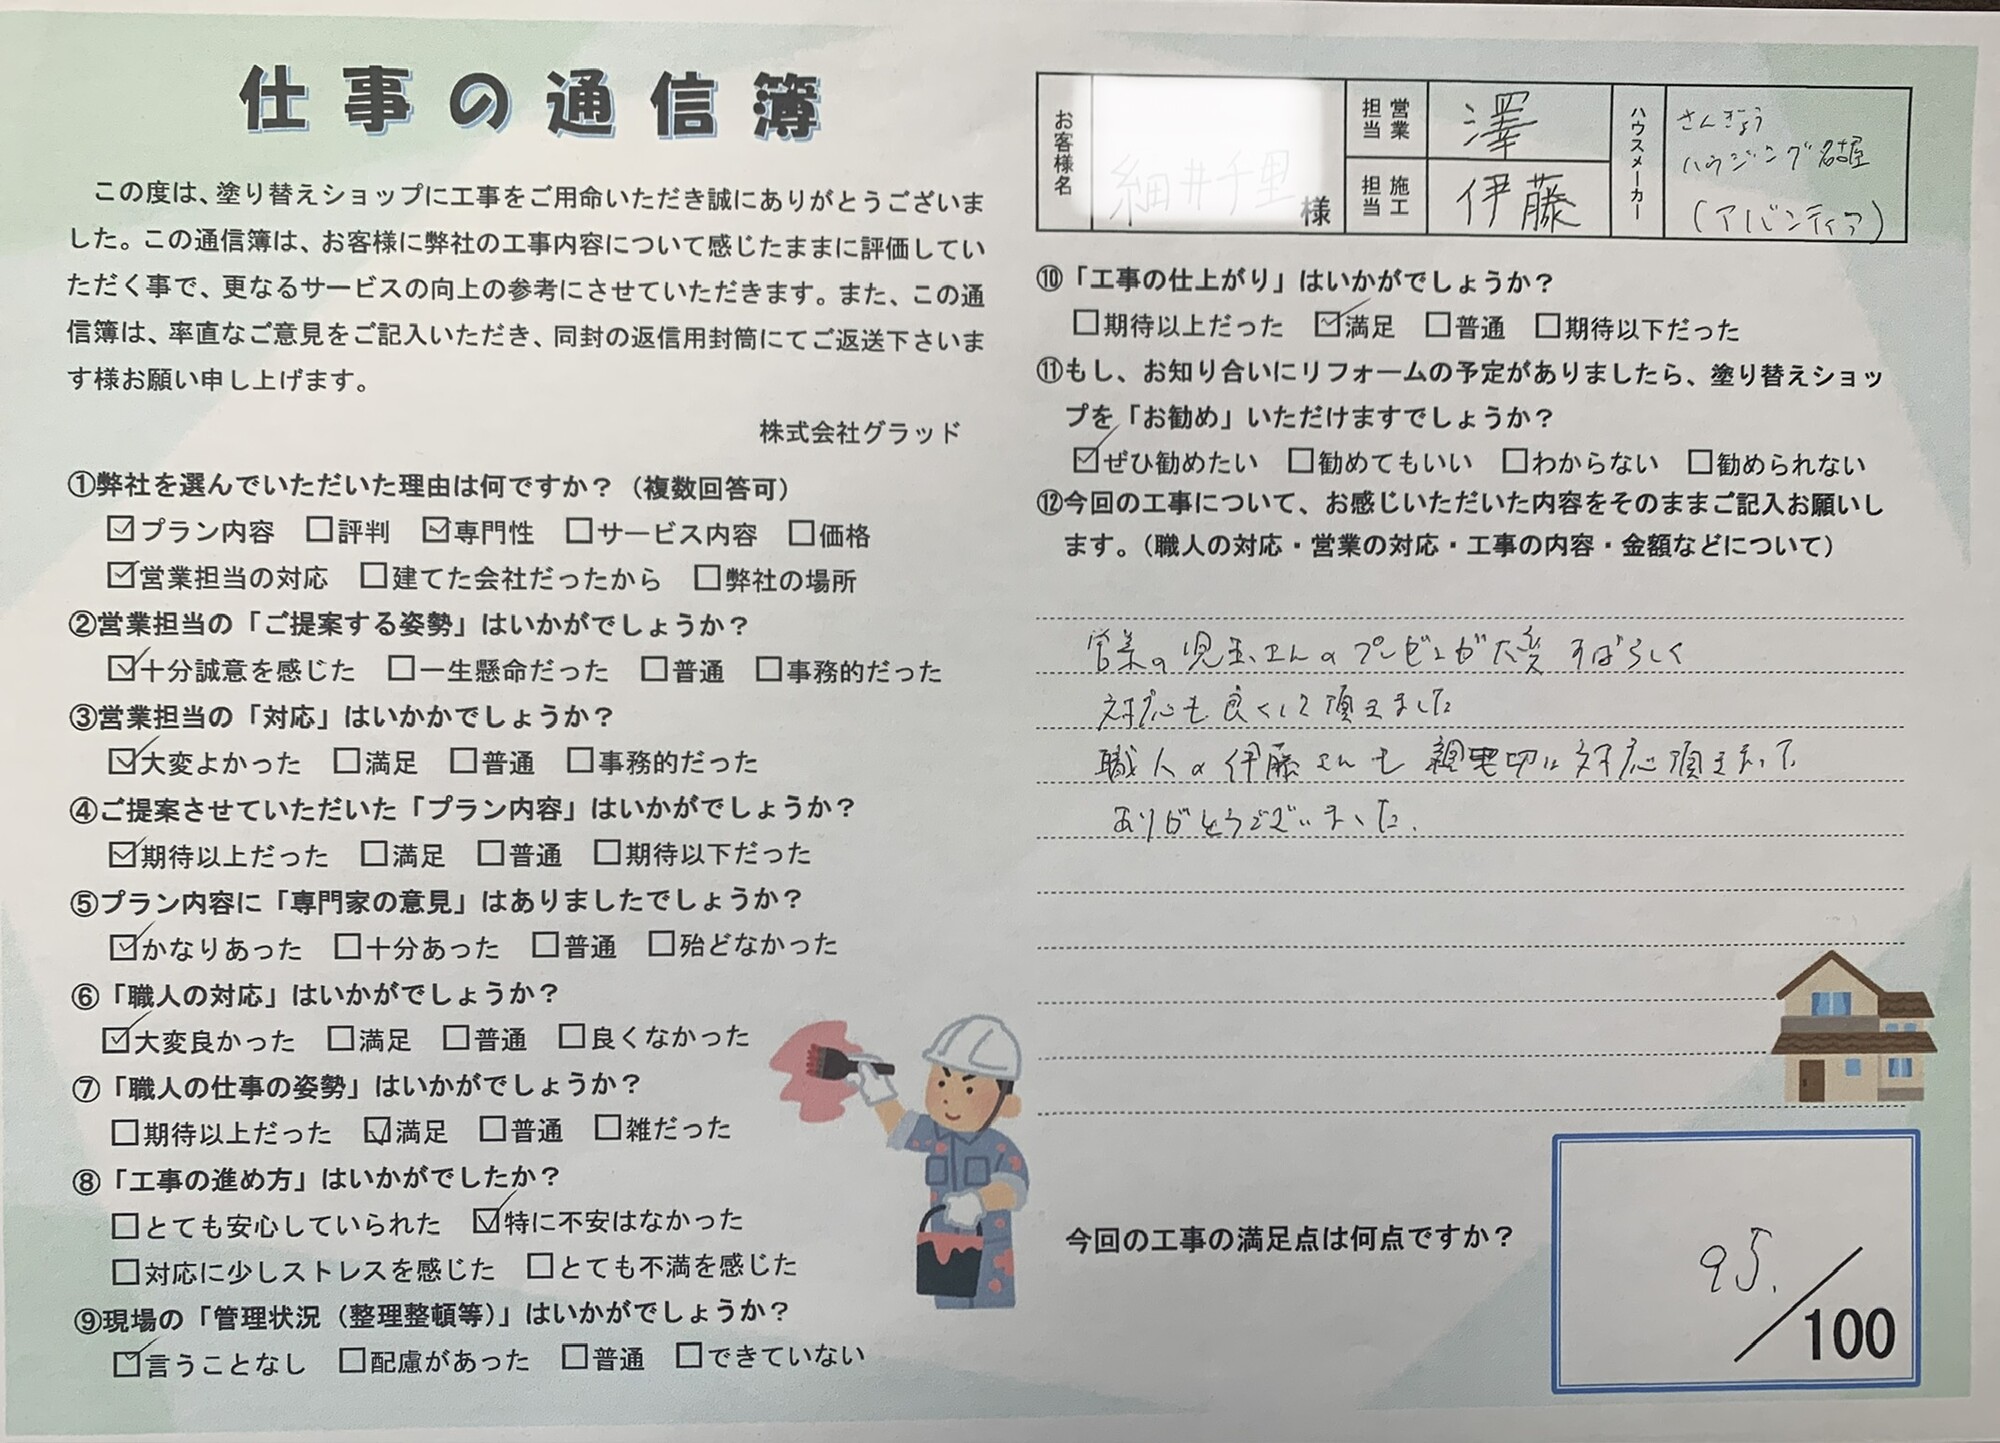 仕事の通信簿
この度は、塗り替えショップに工事をご用命いただき誠にありがとうございま
した。この通信簿は、お客様に弊社の工事内容について感じたままに評価してい
ただく事で、更なるサービスの向上の参考にさせていただきます。また、この通
信簿は、率直なご意見をご記入いただき、同封の返信用封筒にてご返送下さいま
す様お願い申し上げます。
株式会社グラッド
①弊社を選んでいただいた理由は何ですか？（複数回答可）
☑プラン内容 □評判 ☑専門性 □サービス内容 □価格
☑営業担当の対応 □建てた会社だったから □弊社の場所
②営業担当の「ご提案する姿勢」はいかがでしょうか？
☑十分誠意を感じた □一生懸命だった □普通 □事務的だった
③営業担当の「対応」はいかかでしょうか？
☑大変よかった □満足 □普通 □事務的だった
④ご提案させていただいた「プラン内容」はいかがでしょうか？
☑期待以上だった □満足 □普通 □期待以下だった
⑤プラン内容に「専門家の意見」はありましたでしょうか？
☑かなりあった □十分あった □普通 □殆どなかった
⑥「職人の対応」はいかがでしょうか？
☑大変良かった □満足 □普通 □良くなかった
⑦「職人の仕事の姿勢」はいかがでしょうか？
□期待以上だった ☑満足 □普通 □雑だった
⑧「工事の進め方」はいかがでしたか？
□とても安心していられた ☑特に不安はなかった
□対応に少しストレスを感じた □とても不満を感じた
⑨現場の「管理状況（整理整頓等）」はいかがでしょうか？
☑言うことなし □配慮があった □普通 □できていない
お客様名
様
営業担当
澤
施工担当
伊藤
ハウスメーカー
さんぎょう
ハウジング名古屋
（アバンティア）
⑩「工事の仕上がり」はいかがでしょうか？
□期待以上だった ☑満足 □普通 □期待以下だった
⑪もし、お知り合いにリフォームの予定がありましたら、塗り替えショッ
プを「お勧め」いただけますでしょうか？
☑ぜひ勧めたい □勧めてもいい □わからない □勧められない
⑫今回の工事について、お感じいただいた内容をそのままご記入お願いし
ます。（職人の対応・営業の対応・工事の内容・金額などについて）
営業の児玉さんのプレゼンが大変すばらしく
対応も良くして頂きました
職人の伊藤さんも親切に対応頂きまして
ありがとうございました.
今回の工事の満足点は何点ですか？
95.
/100